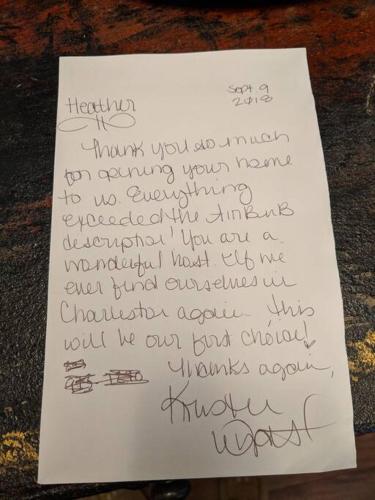 Heather
Sept. 9
2018
Thank you so much
for opening your home
to us. Everything
exceeded the AirBnB
description! You are a
wonderful host. If we
ever find ourselves in
Charleston again this
will be our first choice!
Thanks again,